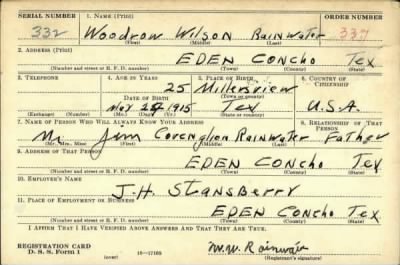 SERIAL NUMBER 1. NAME (Print) ORDER NUMBER
332 Woodrow Wilson Rainwater 337
(First) (Middle) (Last)
2. ADDRESS (Print)
EDEN CONCHO Tex
(Number and street or R. F. D. number) (Town) (County) (State)
3. TELEPHONE 4. AGE IN YEARS 5. PLACE OF BIRTH 6. COUNTRY OF CITIZENSHIP
25 Millersview
DATE OF BIRTH (Town or county)
Nov 25 1915 Tex U.S.A.
(Exchange) (Number) (Mo.) (Day) (Yr.) (State or country)
7. NAME OF PERSON WHO WILL ALWAYS KNOW YOUR ADDRESS 8. RELATIONSHIP OF THAT PERSON
Mr Jim Rainwater Father
(Mr., Mrs., Miss) (First) (Middle) (Last)
9. ADDRESS OF THAT PERSON
EDEN CONCHO Tex
(Number and street or R. F. D. number) (Town) (County) (State)
10. EMPLOYER'S NAME
J.H. Stansberry
11. PLACE OF EMPLOYMENT OR BUSINESS
EDEN CONCHO Tex
(Number and street or R. F. D. number) (Town) (County) (State)
I AFFIRM THAT I HAVE VERIFIED ABOVE ANSWERS AND THAT THEY ARE TRUE.
REGISTRATION CARD
D. S. S. Form 1 (over) 16—17105 W.W. Rainwater
(Registrant's signature)